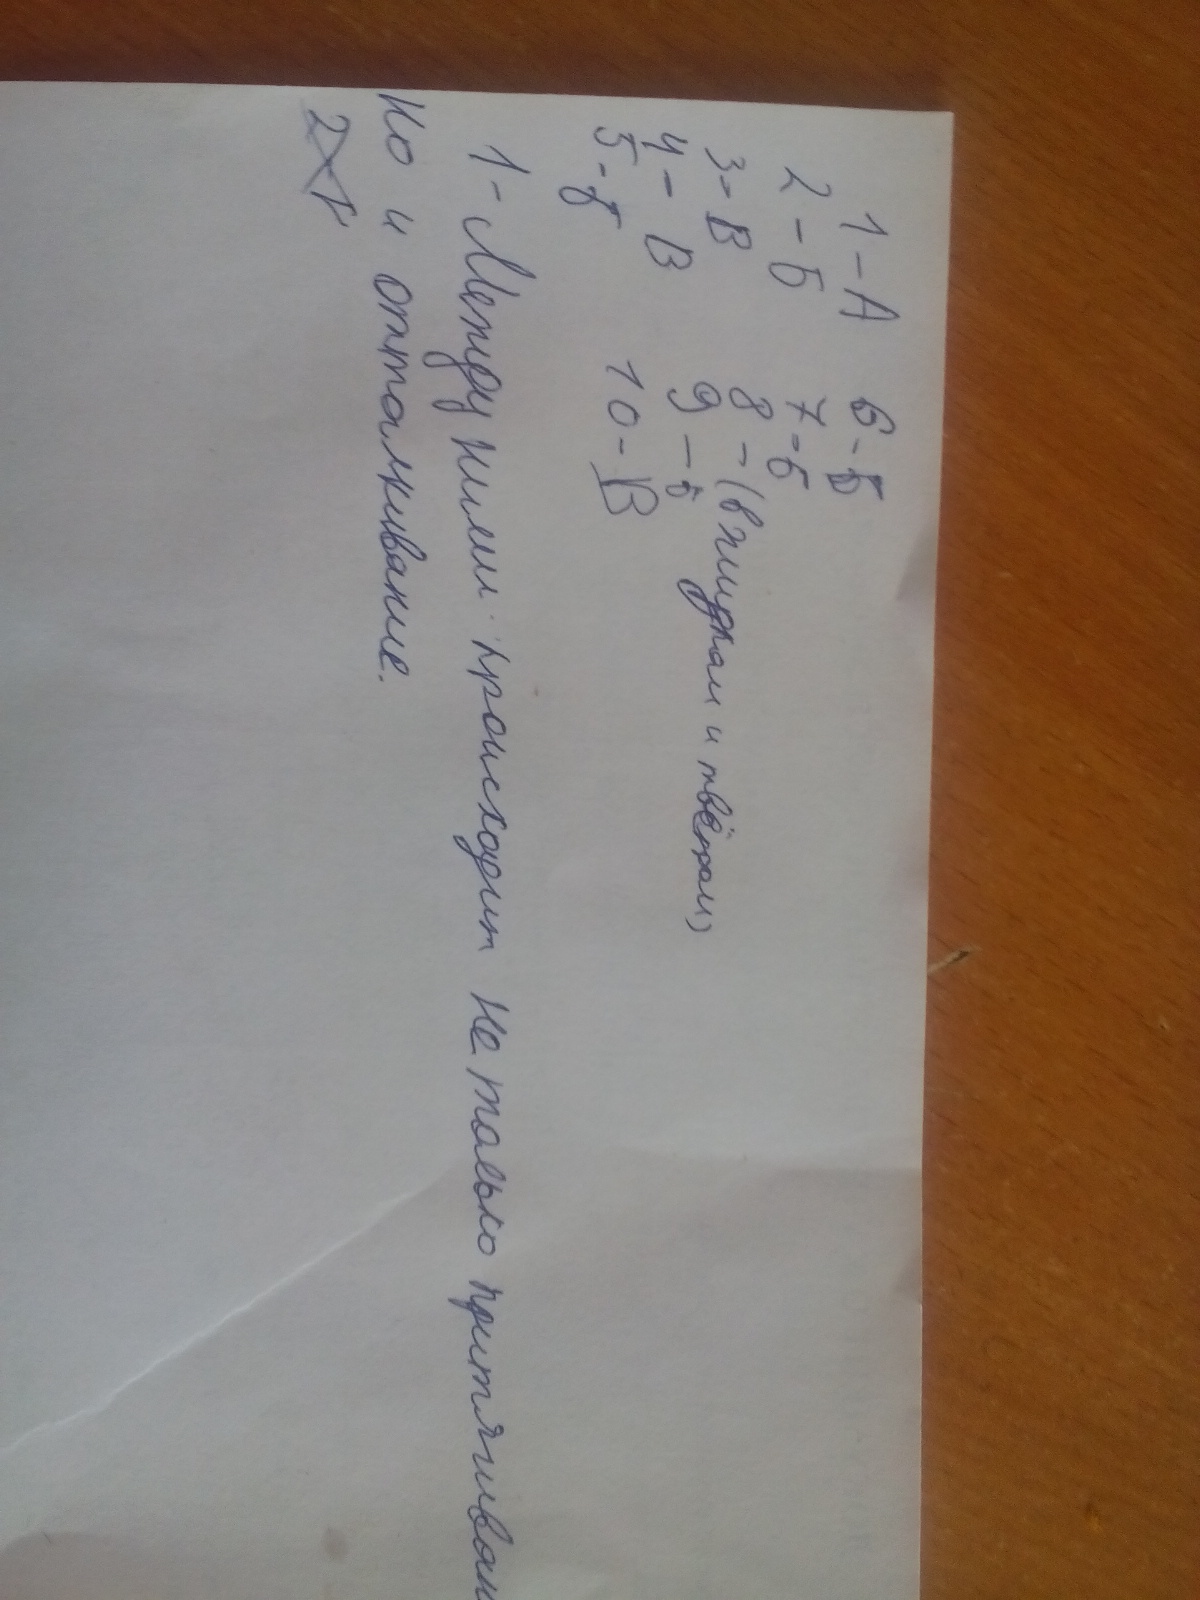 1-А 6-Б
2-Б 7-Б
3-В 8-(в жидком и твёром)
4-В 9-б
5-б 10-В
1-Между ними происходит не только притягиван
но и отталкивание.